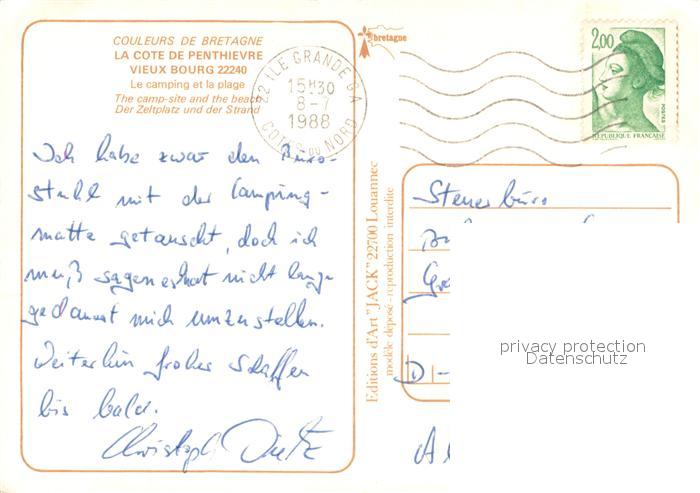 COULEURS DE BRETAGNE
LA COTE DE PENTHIEVRE
VIEUX BOURG 22240
Le camping et la plage
The camp-site and the beach
Der Zeltplatz und der Strand
bretagne
22 ILE GRANDE G A
15H30
8-7
1988
COTES DU NORD
2,00
POSTES
REPUBLIQUE FRANÇAISE
Ich habe zwar den Büro-
stuhl mit der Camping-
matte getauscht, doch ich
muß sagen es hat nicht lange
gedauert mich umzustellen.
Weiterhin frohes Schaffen
bis bald.
Christoph Dietz
Editions d'Art "JACK" 22700 Louannec
modèle déposé - reproduction interdite
Steuerbüro
D-
privacy protection
Datenschutz